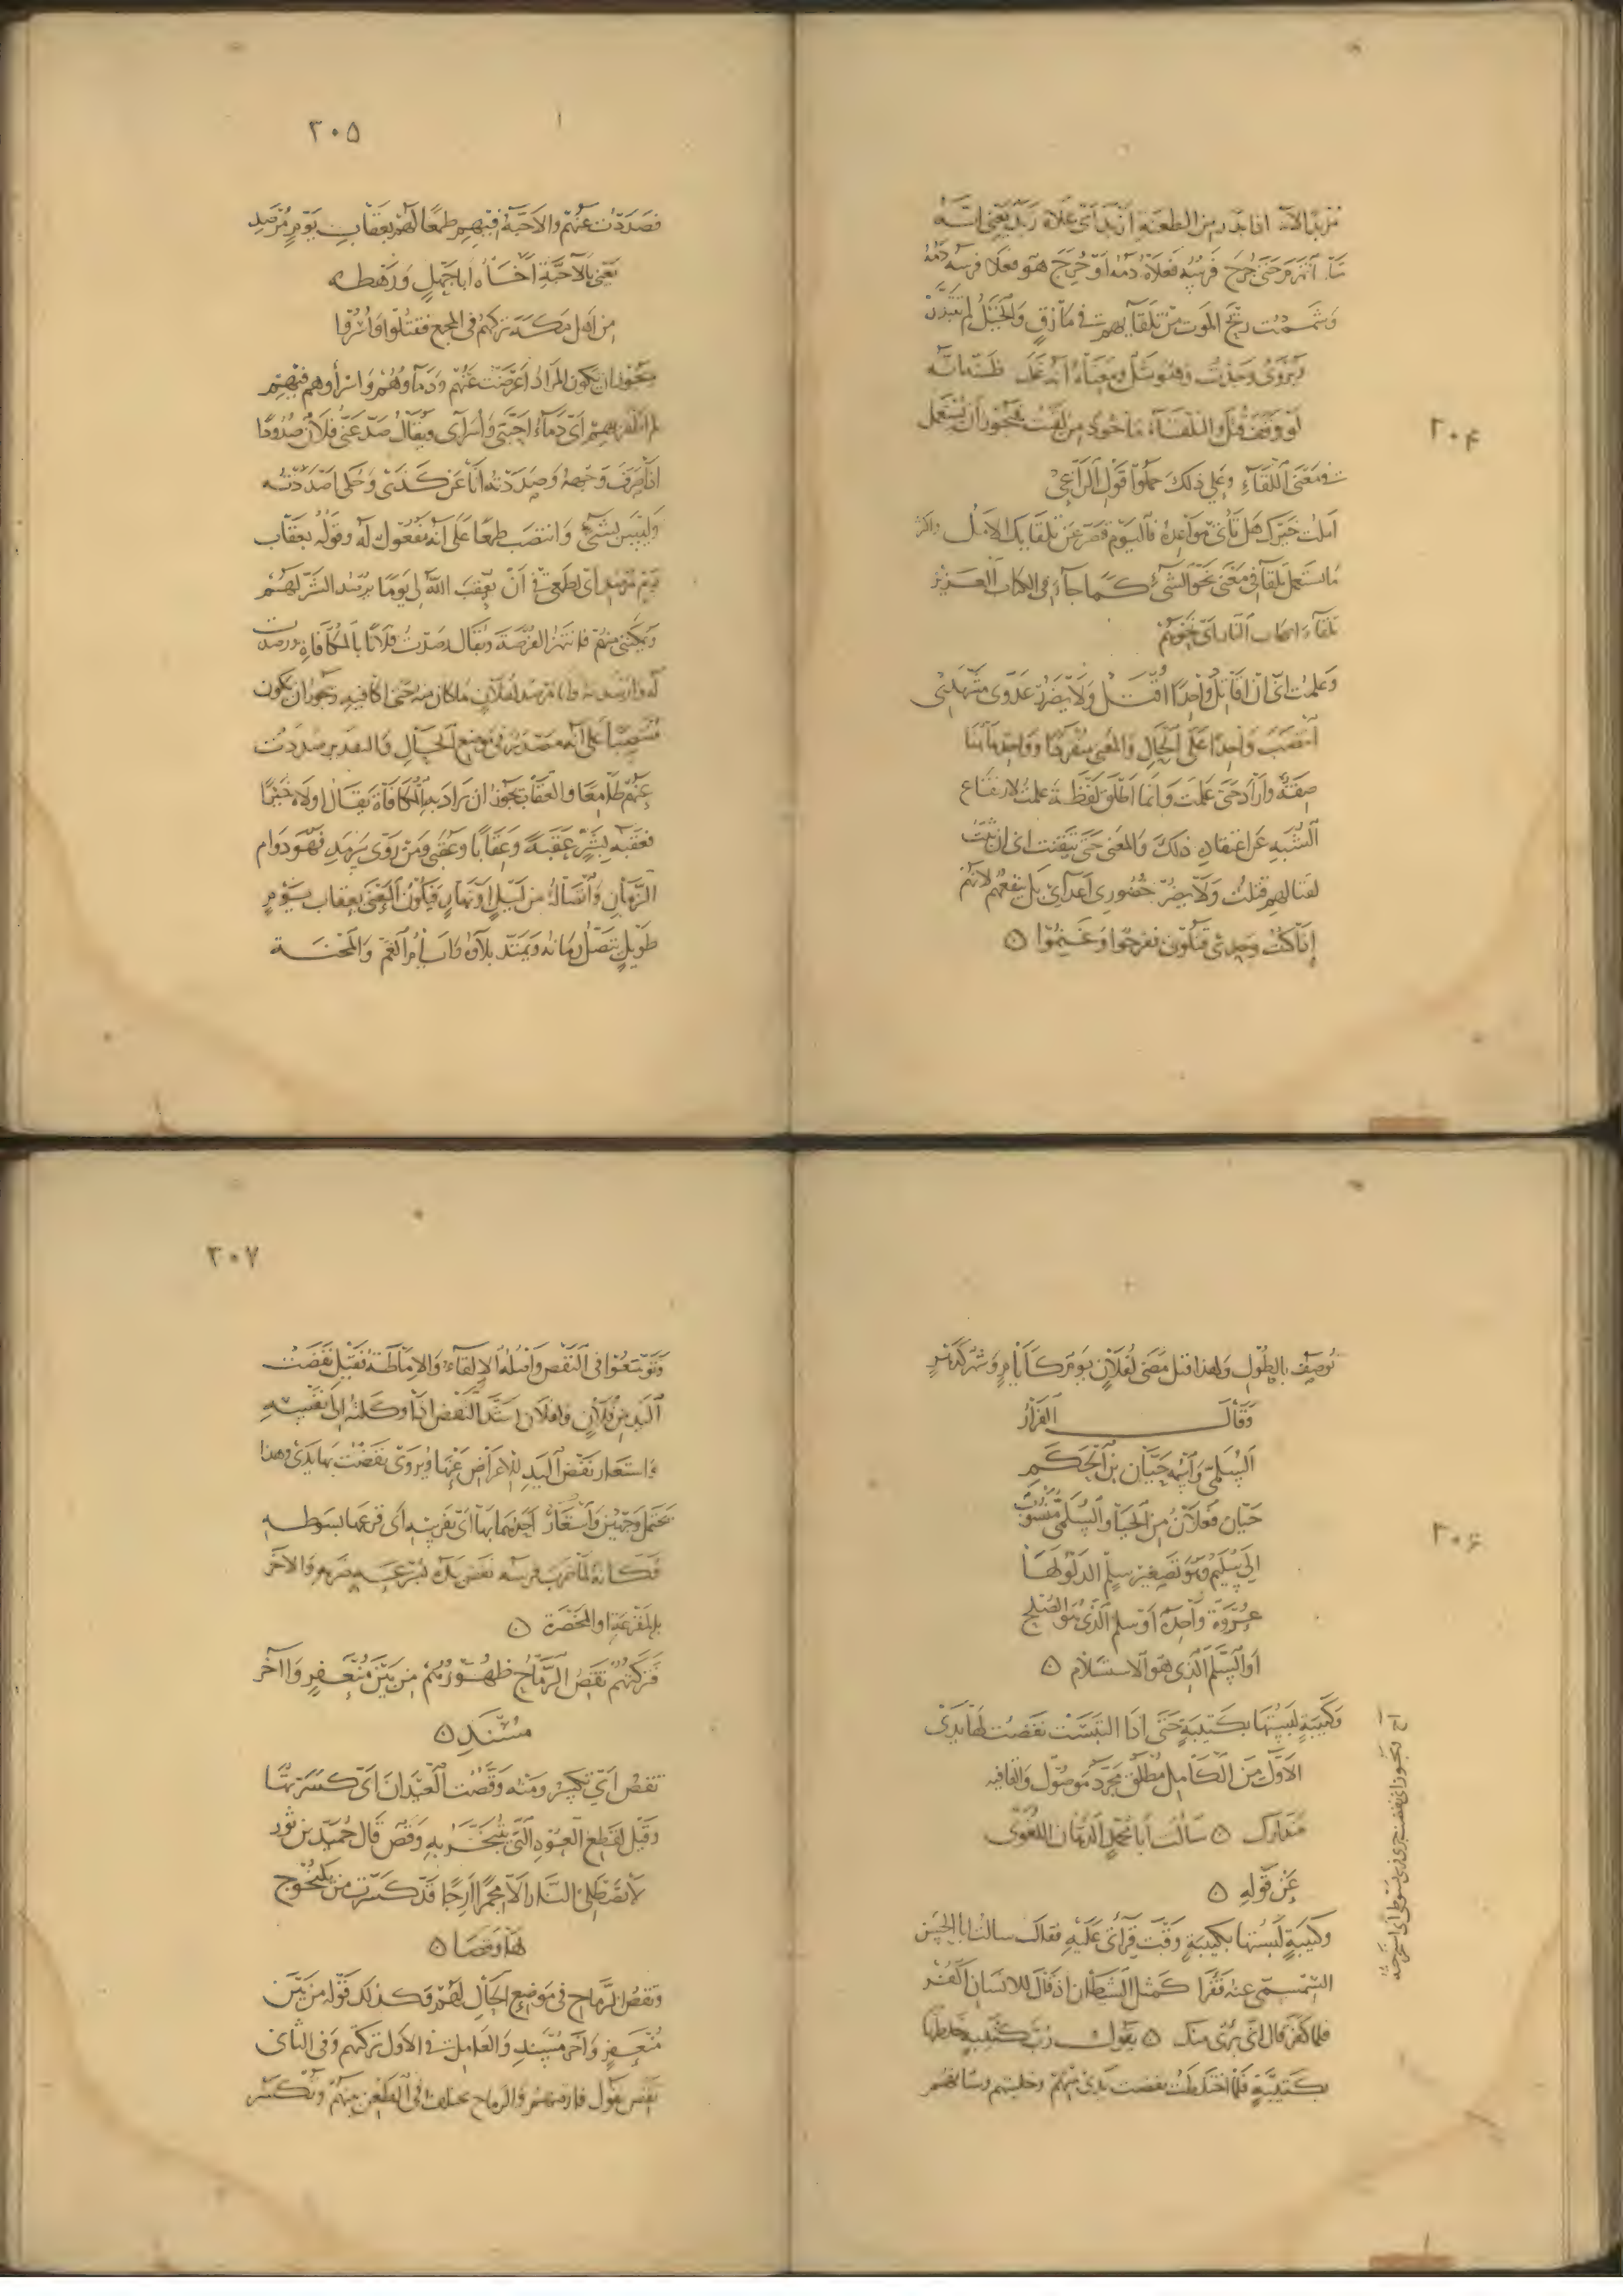 ٣٠۴
مزبدا لأن اذا بدر من الطعنة ازبد اى علاه زبد يعنى انه
ما انهزم حتى جرح فرسه فعلاه دمه او جرح هو فعلا فرسه دمه
وشممت ريح الموت من تلقايهم فى مازق والخيل لم تتبدد
ويروى وجدت وقوله ومعناه انه غلب ظنه انه
لو وقف قتل والتلقاء ماخوذ من لقيت فيجوز ان يستعمل
فى معنى اللقاء وعلى ذلك حملوا قول الراعى
املت خيرك هل تأتى مواعده فاليوم قصر عن تلقايك الامل واكثر
ما استعمل تلقا فى معنى نحو الشىء كما جاء فى الكتاب العزيز
تلقاء اصحاب النار اى نحوهم
وعلمت انى ان اقاتل واحدا اقتل ولا يضرر عدوى مشهدى
انتصب واحدا على الحال والمعنى منفردا وواحد هاهنا
صفة واراد حتى علمت وانما اطلق لفظة علمت لارتفاع
الشبه عن اعتقاده ذلك والمعنى حتى تيقنت انى ان ثبت
لقتالهم قتلت ولا يضر حضورى اعدائى بل ينفعهم لانهم
اذا كنت وحدى قتلونى ففرحوا وغنموا ○
٣٠۵
فصددت عنهم والاحبة فيهم طمعا لهم بعقاب يوم مرصد
يعنى بالاحبة اخاه ابا جهل ورهطه
من اهل مكة تركهم فى المجمع فقتلوا واسروا
ويجوز ان يكون المراد اعرضت عنهم ودماؤهم واسراؤهم فيهم
لم اظفر بهم اى دماء احبتى واسراى ويقال صد عنى فلان صدودا
اذا صرف وجهه وصددته انا عن كذى وحكى اصددته
وليس بشىء وانتصب طمعا على انه مفعول له وقوله بعقاب
يوم مرصد اى لطمعى فى ان يعقب الله لى يوما يرصد الشر لهم
ويمكننى منهم فانتهز الفرصة ويقال رصدت فلانا بالمكافاة ورصدت
له وارصدته وانا مرصد لفلان ما كان منه حتى اكافيه ويجوز ان يكون
منتصبا على انه مصدر فى موضع الحال والتقدير صددت
عنهم طامعا والعقاب يجوز ان يراد به المكافاة يقال اولاه خيرا
فعقبه بشر عقبة وعقابا وعقبى ومن روى سرمد فهو دوام
الزمان واتصاله من ليل او نهار فيكون المعنى بعقاب يوم
طويل تتصل زمانه ويمتد بلاؤه وايام الغم والمحنة
٣٠۶
توصف بالطول ولهذا قيل مضى لفلان يوم كايام وشهر كدهر
وقال الفرار
السلمى واسمه حيان بن الحكم
حيان فعلان من الحيا والسلمى منسوب
الى سليم وهو تصغير سلم الدلو لها
عروة واحدة او سلم الذى هو الصلح
او السلم الذى هو الاستسلام ○
وكتيبة لبستها بكتيبة حتى اذا التبست نفضت لها يدى
الاول من الكامل مطلق مجرد موصول والقافيه
متدارك ○ سالت ابا محمد الدهان اللغوى
عن قوله ○
وكتيبة لبستها بكتيبة وقت قراتى عليه فقال سالت ابا الحسن
السمسمى عنه فقرا كمثل الشيطان اذ قال للانسان اكفر
فلما كفر قال انى برى منك ○ يقول رب كتيبة خلطتها
بكتيبة فلما اختلطت نفضت يدى منهم وخليتهم وشانهم
٣٠٧
وتوسعوا فى النفض واصله الالقاء والاماطة فقيل نفضت
اليد من فلان وفلان اشد النفض اذا وكلته الى نفسه
واستعار نفض اليد للاعراض عنها ويروى نفضت بها يدى وهذا
يحتمل وجهين واستعار احدهما بها اى بفرسه اى قرعها بسوطه
فكانه لما ضرب فرسه نفض يده والاخر
بالمقرعة او المخصرة ○
فتركتهم تقص الرماح ظهورهم من بين منعفر وآخر
مسند ○
تقص اى تكسر ومنه وقصت العيدان اى كسرتها
وقيل لقطع العود التى يتبخر به وقص قال حميد بن ثور
لا تصطلى النار الا مجمرا ارجا قد كسرت من يلنجوج
لها وقصا ○
وتقص الرماح فى موضع الحال لهم وكذلك قوله من بين
منعفر وآخر مسند والعامل فى الاول تركتهم وفى الثانى
تقص يقول فارقتهم والرماح تختلف فى الطعن بينهم وتكسر